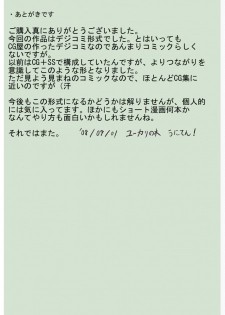 ・あとがきです
ご購入真にありがとうございました。
今回の作品はデジコミ形式でした。とはいっても
CG屋の作ったデジコミなのであんまりコミックらしく
ないですが。
以前はCG+SSで構成していたんですが、よりつながりを
意識してこのような形となりました。
ただ見よう見まねのコミックなので、ほとんどCG集に
近いのですが（汗
今後もこの形式になるかどうかは解りませんが、個人的
には気に入ってます。ほかにもショート漫画何本か
なんてやり方も面白いかもしれませんね。
それではまた。 '08/09/01 ユーカリの木 うにてん!